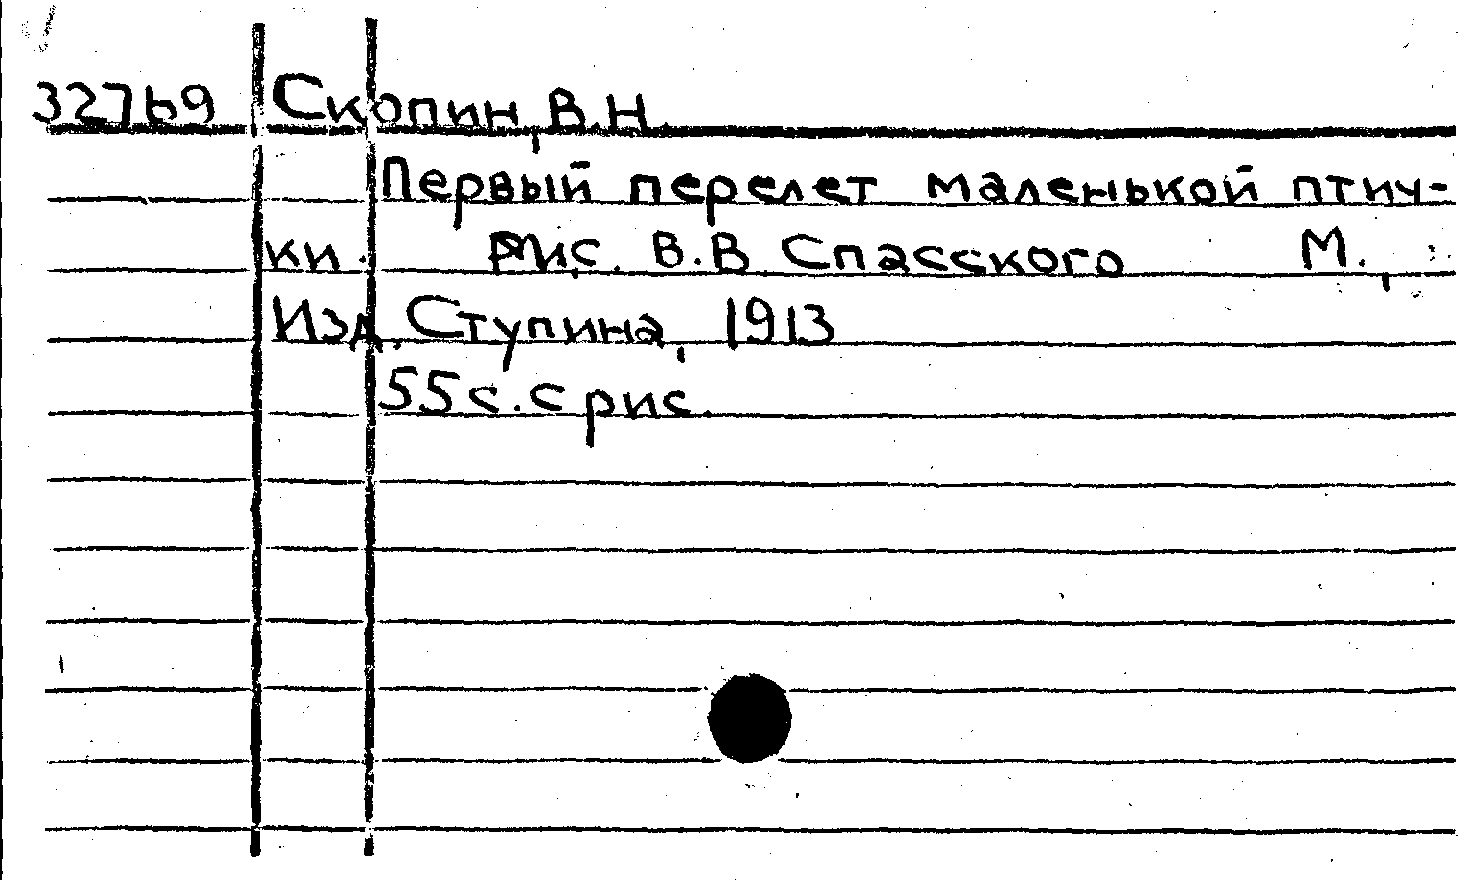 32769 Скопин, В.Н.
Первый перелет маленькой птич-
ки. Рис. В.В. Спасского М.,
Изд. Ступина, 1913
55 с. с рис.